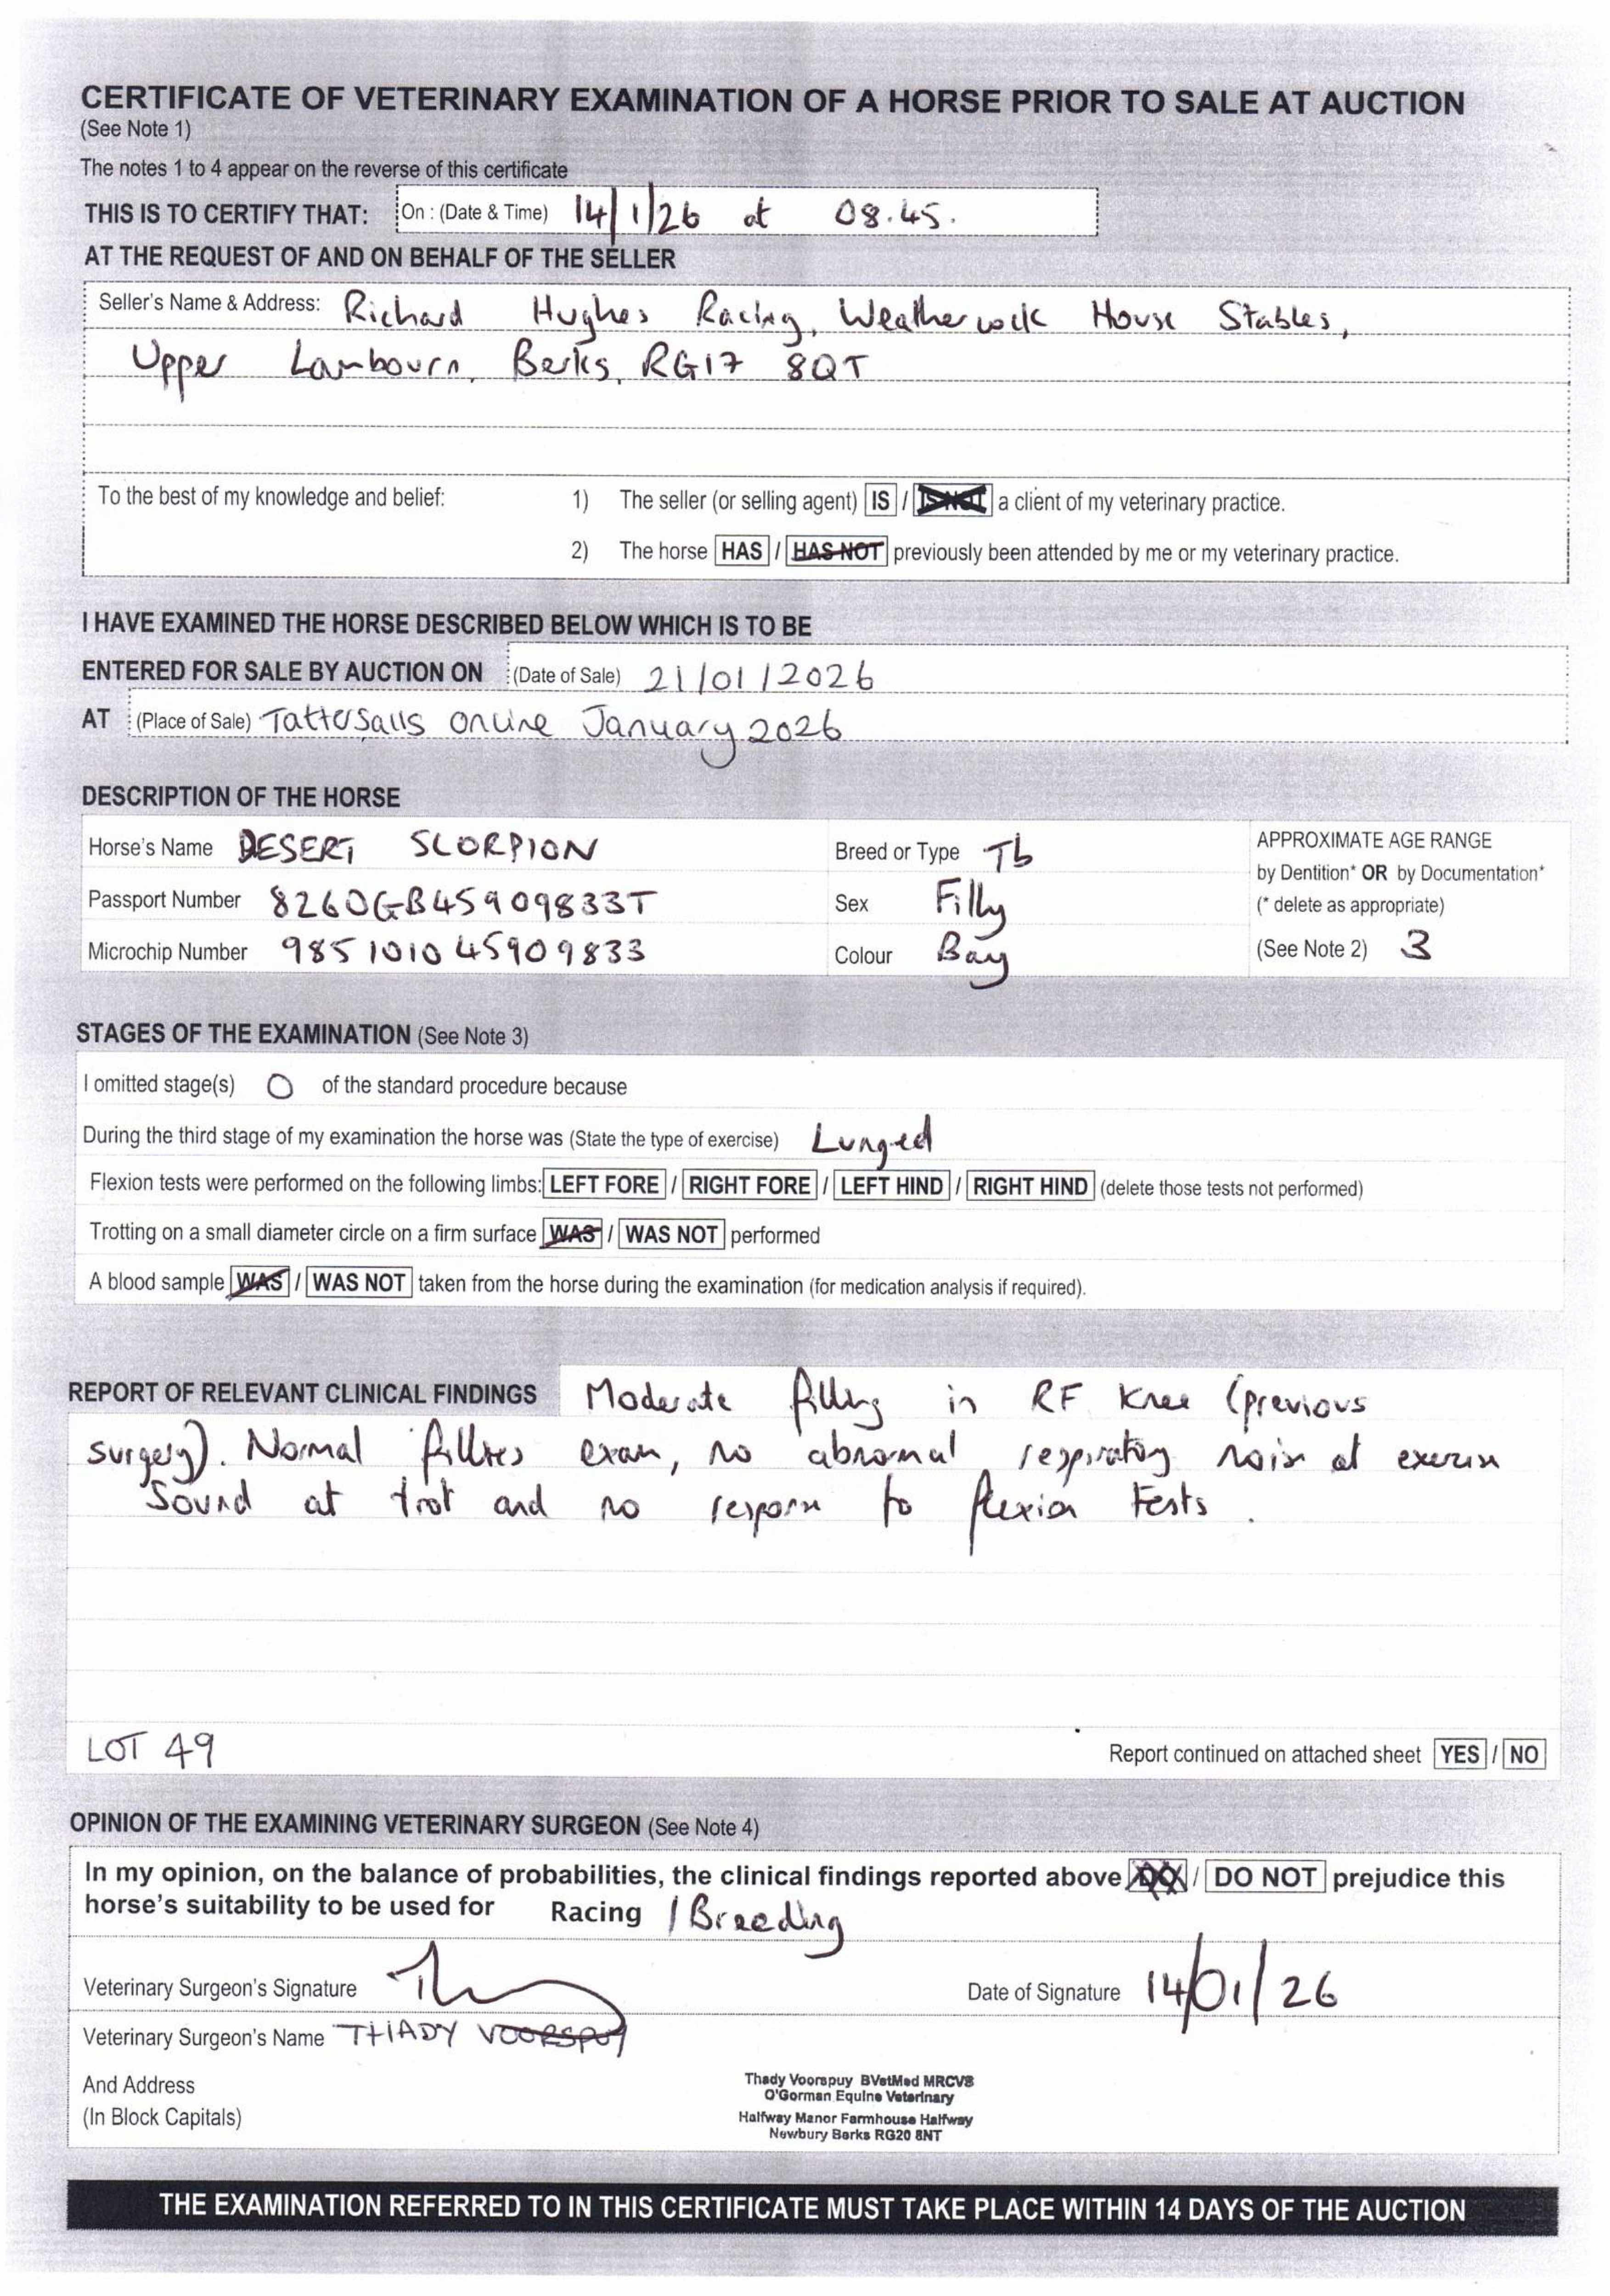 CERTIFICATE OF VETERINARY EXAMINATION OF A HORSE PRIOR TO SALE AT AUCTION
(See Note 1)
The notes 1 to 4 appear on the reverse of this certificate
THIS IS TO CERTIFY THAT: On : (Date & Time) 14/1/26 at 08.45.
AT THE REQUEST OF AND ON BEHALF OF THE SELLER
Seller's Name & Address: Richard Hughes Racing, Weathercock House Stables,
Upper Lambourn, Berks, RG17 8QT
To the best of my knowledge and belief: 1) The seller (or selling agent) IS / IS NOT a client of my veterinary practice.
2) The horse HAS / HAS NOT previously been attended by me or my veterinary practice.
I HAVE EXAMINED THE HORSE DESCRIBED BELOW WHICH IS TO BE
ENTERED FOR SALE BY AUCTION ON (Date of Sale) 21/01/2026
AT (Place of Sale) Tattersalls Online January 2026
DESCRIPTION OF THE HORSE
Horse's Name DESERT SCORPION Breed or Type Tb APPROXIMATE AGE RANGE
by Dentition* OR by Documentation*
Passport Number 8260GB45909833T Sex Filly (* delete as appropriate)
Microchip Number 985101045909833 Colour Bay (See Note 2) 3
STAGES OF THE EXAMINATION (See Note 3)
I omitted stage(s) 0 of the standard procedure because
During the third stage of my examination the horse was (State the type of exercise) Lunged
Flexion tests were performed on the following limbs: LEFT FORE / RIGHT FORE / LEFT HIND / RIGHT HIND (delete those tests not performed)
Trotting on a small diameter circle on a firm surface WAS / WAS NOT performed
A blood sample WAS / WAS NOT taken from the horse during the examination (for medication analysis if required).
REPORT OF RELEVANT CLINICAL FINDINGS Moderate filling in RF knee (previous
surgery). Normal fillies exam, no abnormal respiratory noise at exercise
Sound at trot and no response to flexion tests.
LOT 49 Report continued on attached sheet YES / NO
OPINION OF THE EXAMINING VETERINARY SURGEON (See Note 4)
In my opinion, on the balance of probabilities, the clinical findings reported above DO / DO NOT prejudice this
horse's suitability to be used for Racing / Breeding
Veterinary Surgeon's Signature Date of Signature 14/01/26
Veterinary Surgeon's Name THADY VOORSPUY
And Address
(In Block Capitals)
Thady Voorspuy BVetMed MRCVS
O'Gorman Equine Veterinary
Halfway Manor Farmhouse Halfway
Newbury Berks RG20 8NT
THE EXAMINATION REFERRED TO IN THIS CERTIFICATE MUST TAKE PLACE WITHIN 14 DAYS OF THE AUCTION